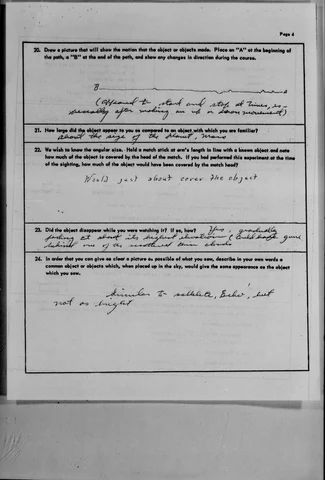 Page 4
20. Draw a picture that will show the motion that the object or objects made. Place an "A" at the beginning
of the path, a "B" at the end of the path, and show any changes in direction during the course.
B
A
(appeared to start and stop at times, es-
pecially after making an up or down movement)
21. How large did the object appear to you as compared to an object with which you are familiar?
about the size of the planet, Mars
22. We wish to know the angular size. Hold a match stick at arm's length in line with a known object and note
how much of the object is covered by the head of the match. If you had performed this experiment at the time
of the sighting, how much of the object would have been covered by the match head?
Would just about cover the object
23. Did the object disappear while you were watching it? If so, how? Yes, gradually
fading at about its highest elevation. Could have gone
behind one of the scattered thin clouds
24. In order that you can give as clear a picture as possible of what you saw, describe in your own words a
common object or objects which, when placed up in the sky, would give the same appearance as the object
which you saw.
Similar to satellite, Echo, but
not as bright